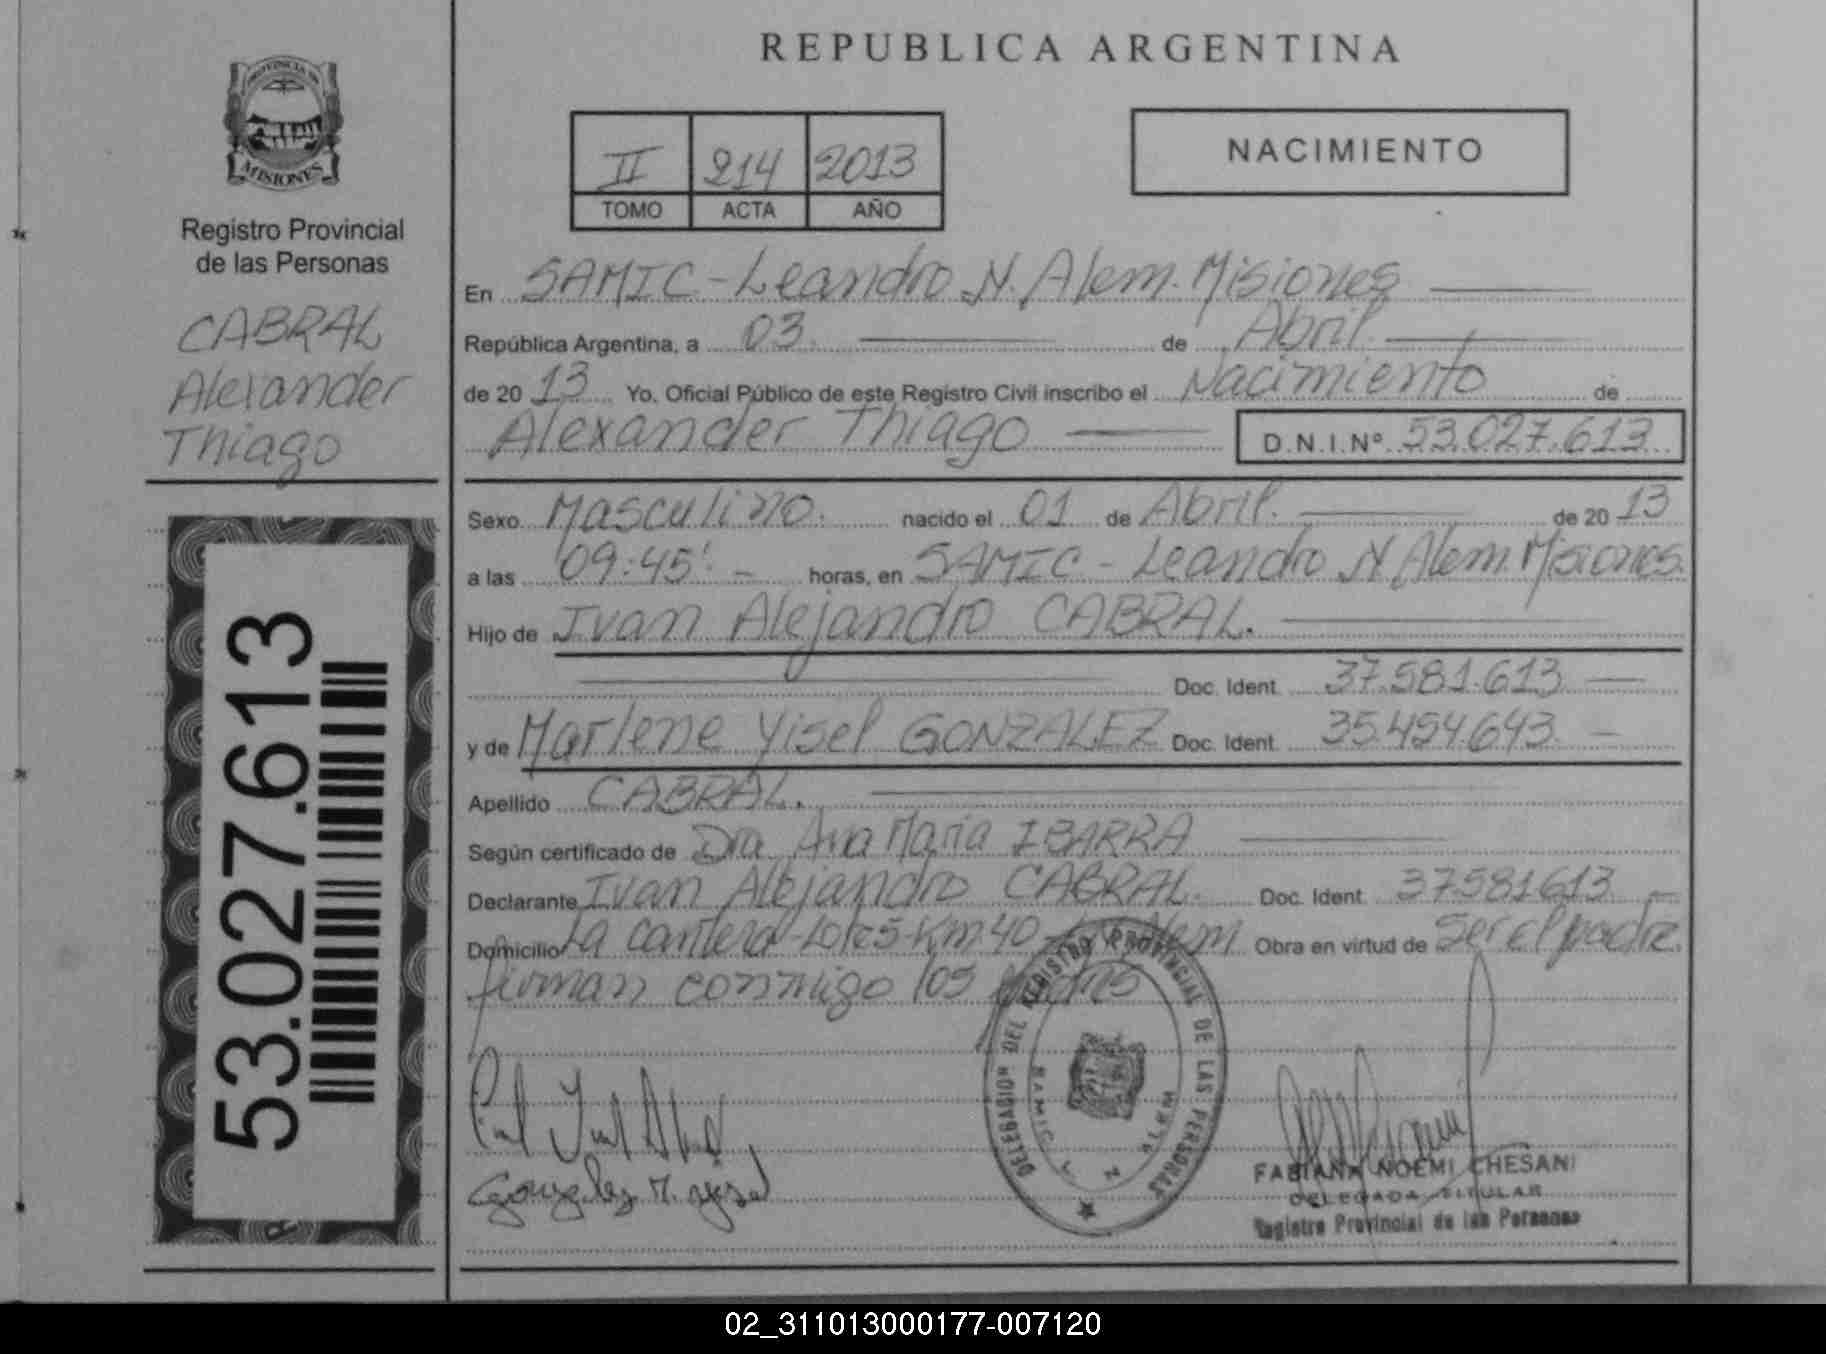 REPUBLICA ARGENTINA
PROVINCIA DE
MISIONES
Registro Provincial
de las Personas
CABRAL
Alexander
Thiago
53.027.613
II 214 2013
TOMO ACTA AÑO
NACIMIENTO
En SAMIC - Leandro N. Alem. Misiones
República Argentina, a 03. de Abril.
de 20 13 Yo. Oficial Público de este Registro Civil inscribo el Nacimiento de
Alexander Thiago D.N.I.Nº 53.027.613
Sexo Masculino. nacido el 01 de Abril. de 20 13
a las 09:45' - horas, en SAMIC - Leandro N Alem. Misiones.
Hijo de Ivan Alejandro CABRAL.
Doc. Ident. 37.581.613
y de Marlene Yisel GONZALEZ Doc. Ident. 35.454.643.
Apellido CABRAL.
Según certificado de Dra Ana Maria IBARRA
Declarante Ivan Alejandro CABRAL. Doc. Ident. 37581613
Domicilio La Cantera - Lote 5 - Km 40 - Alem Obra en virtud de Ser el padre.
firman conmigo los
DELEGACION DEL REGISTRO PROVINCIAL DE LAS PERSONAS
SAMIC L N ALEM
Gonzalez M. Yisel
FABIANA NOEMI CHESANI
DELEGADA TITULAR
Registro Provincial de las Personas
02_311013000177-007120